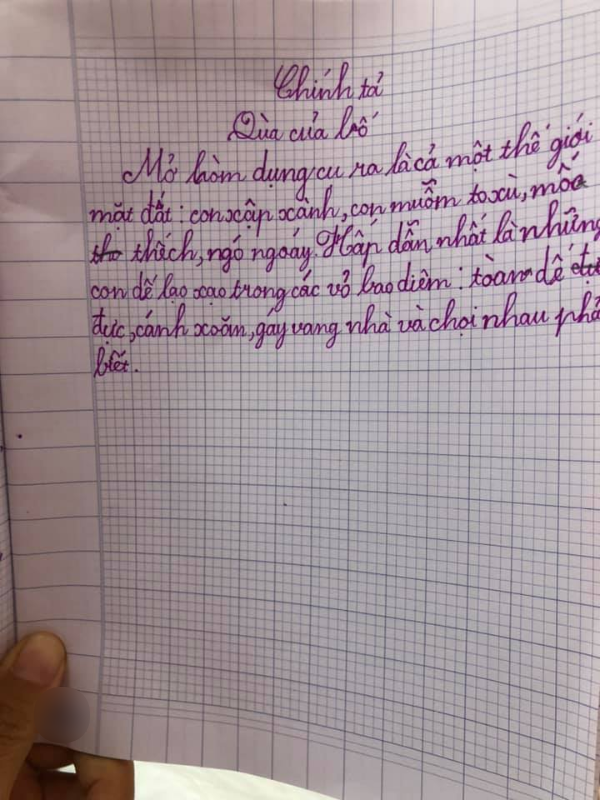 Chính tả
Qùa của bố
Mở hòm dụng cu ra là cả một thế giới
mặt đất: con xập xành, con muỗm to xù, mốc
thích, ngó ngoáy. Hấp dẫn nhất là những
con dế lạo xạo trong các vỏ bao diêm: toàn dế
đực, cánh xoăn, gáy vang nhà và chọi nhau phả
biết.